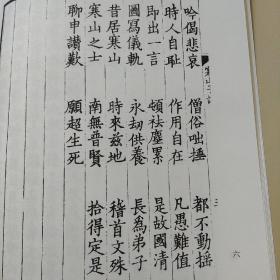 吟偈悲哀 僧俗咄捶 都不動搖
時人自耻 作用自在 凡愚難值
即出一言 頓祛塵累 是故國清
圖寫儀軌 永劫供養 長為弟子
昔居寒山 時來兹地 稽首文殊
寒山之士 南無普賢 拾得定是
聊申讚歎 願超生死
寒山子詩
三
六